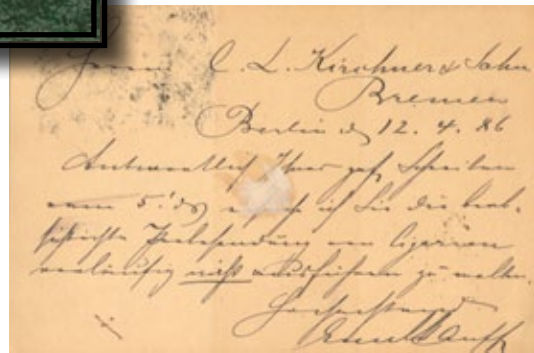 Herrn C. L. Kirchner & Sohn
Bremen
Berlin d. 12. 4. 86
Antwortlich Ihres gef. Schreiben
vom 5. ds. ich Sie die beab-
sichtigte Probesendung von Cigarren
vorläufig nicht ausführen zu wollen.
Hochachtend